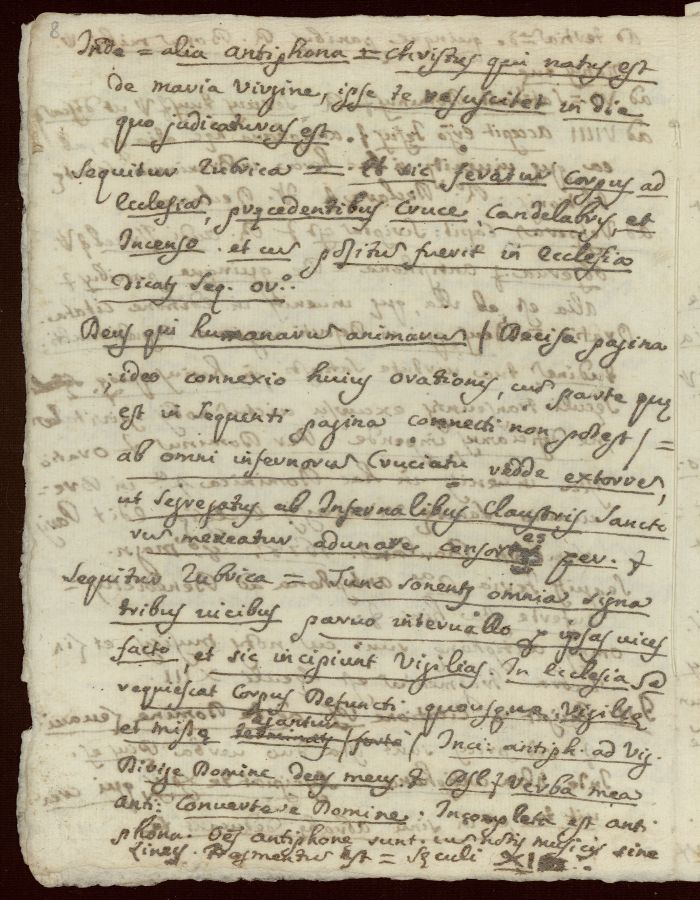 8
Inde = alia antiphona = Christus qui natus est
de maria virgine, ipse te resuscitet in die
quo judicaturus est.
Sequitur Rubrica = Et sic feratur corpus ad
Ecclesiam, precedentibus Cruce, Candelabris et
Incenso. et cum positum fuerit in Ecclesia
Dicatur Seq. or:
Deus qui humanarum animarum / Decisa pagina
, ideo connexio huius orationis, cum parte que
est in sequenti pagina connecti non potest / =
ab omni infernorum Cruciatu redde extorrem,
ut segregatus ab Infernalibus Claustris Sancto
rum mereatur adunare consortes per.
Sequitur Rubrica = Tunc sonent omnia signa
tribus vicibus parvo intervallo p ipsas vices
facto, et sic incipiunt Vigilias. In Ecclesia
requiescat Corpus Defuncti quousque Vigilie
et misse terminat /forte/ Inci: antiph. ad Vig.
Dirige Domine deus meus Psl Verba mea
anti: Convertere Domine: Incompleta est anti
phona. Oes antiphone sunt cum notis musicis sine
Lineis. Fragmentum est = Seculi XI